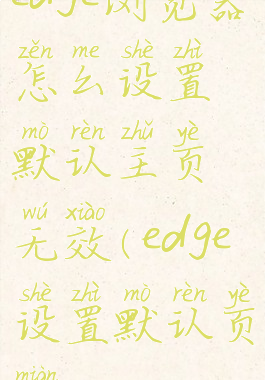 edge浏览器
zěn me shè zhì
怎么设置
mò rèn zhǔ yè
默认主页
wú xiào
无效(edge
shè zhì mò rèn yè
设置默认页
miàn